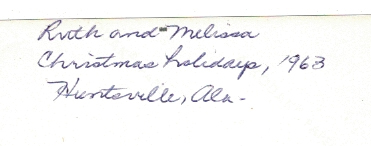 Ruth and Melissa
Christmas holidays, 1963
Huntsville, Ala.